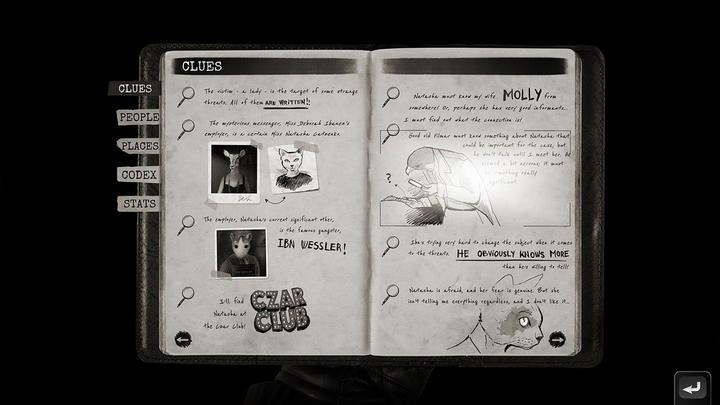 CLUES
CLUES
PEOPLE
PLACES
CODEX
STATS
The victim - a lady - is the target of some strange
threats. All of them ARE WRITTEN!!
The mysterious messenger, Miss Deborah Ibanez's
employer, is a certain Miss Natasha
The employer, Natasha's current significant other,
is the famous gangster,
IBN WESSLER!
I'll find
Natasha at
the Czar Club!
CZAR
CLUB
Natasha must know my wife MOLLY from
somewhere! Or, perhaps she has very good informants...
I must find out what the connection is!
Good old Filmar must know something about Natasha that
could be important for the case, but
he won't talk until I meet her. He
seemed a bit nervous; it must
be something really
significant.
?
Ibn's trying very hard to change the subject when it comes
to the threats. HE OBVIOUSLY KNOWS MORE
than he's willing to tell!
Natasha is afraid, and her fear is genuine. But she
isn't telling me everything regardless, and I don't like it...